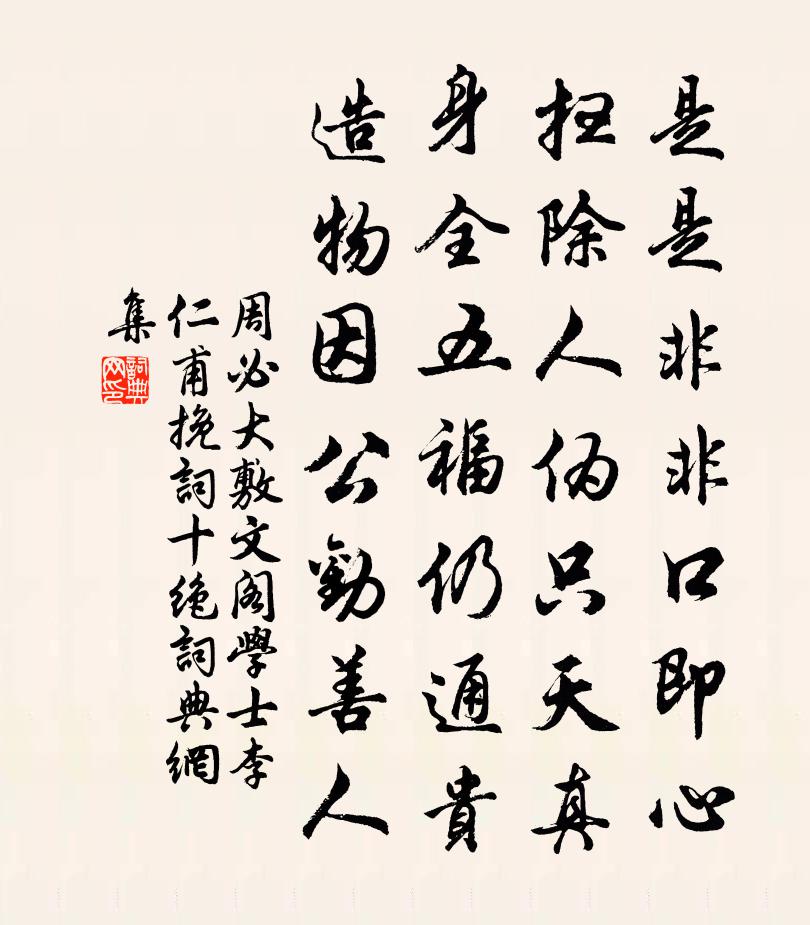 是是非非口即心
扫除人伪只天真
身全五福仍通貴
造物因公勸善人
周必大敷文阁學士李
仁甫挽詞十绝詞典網
集
詞典
网印